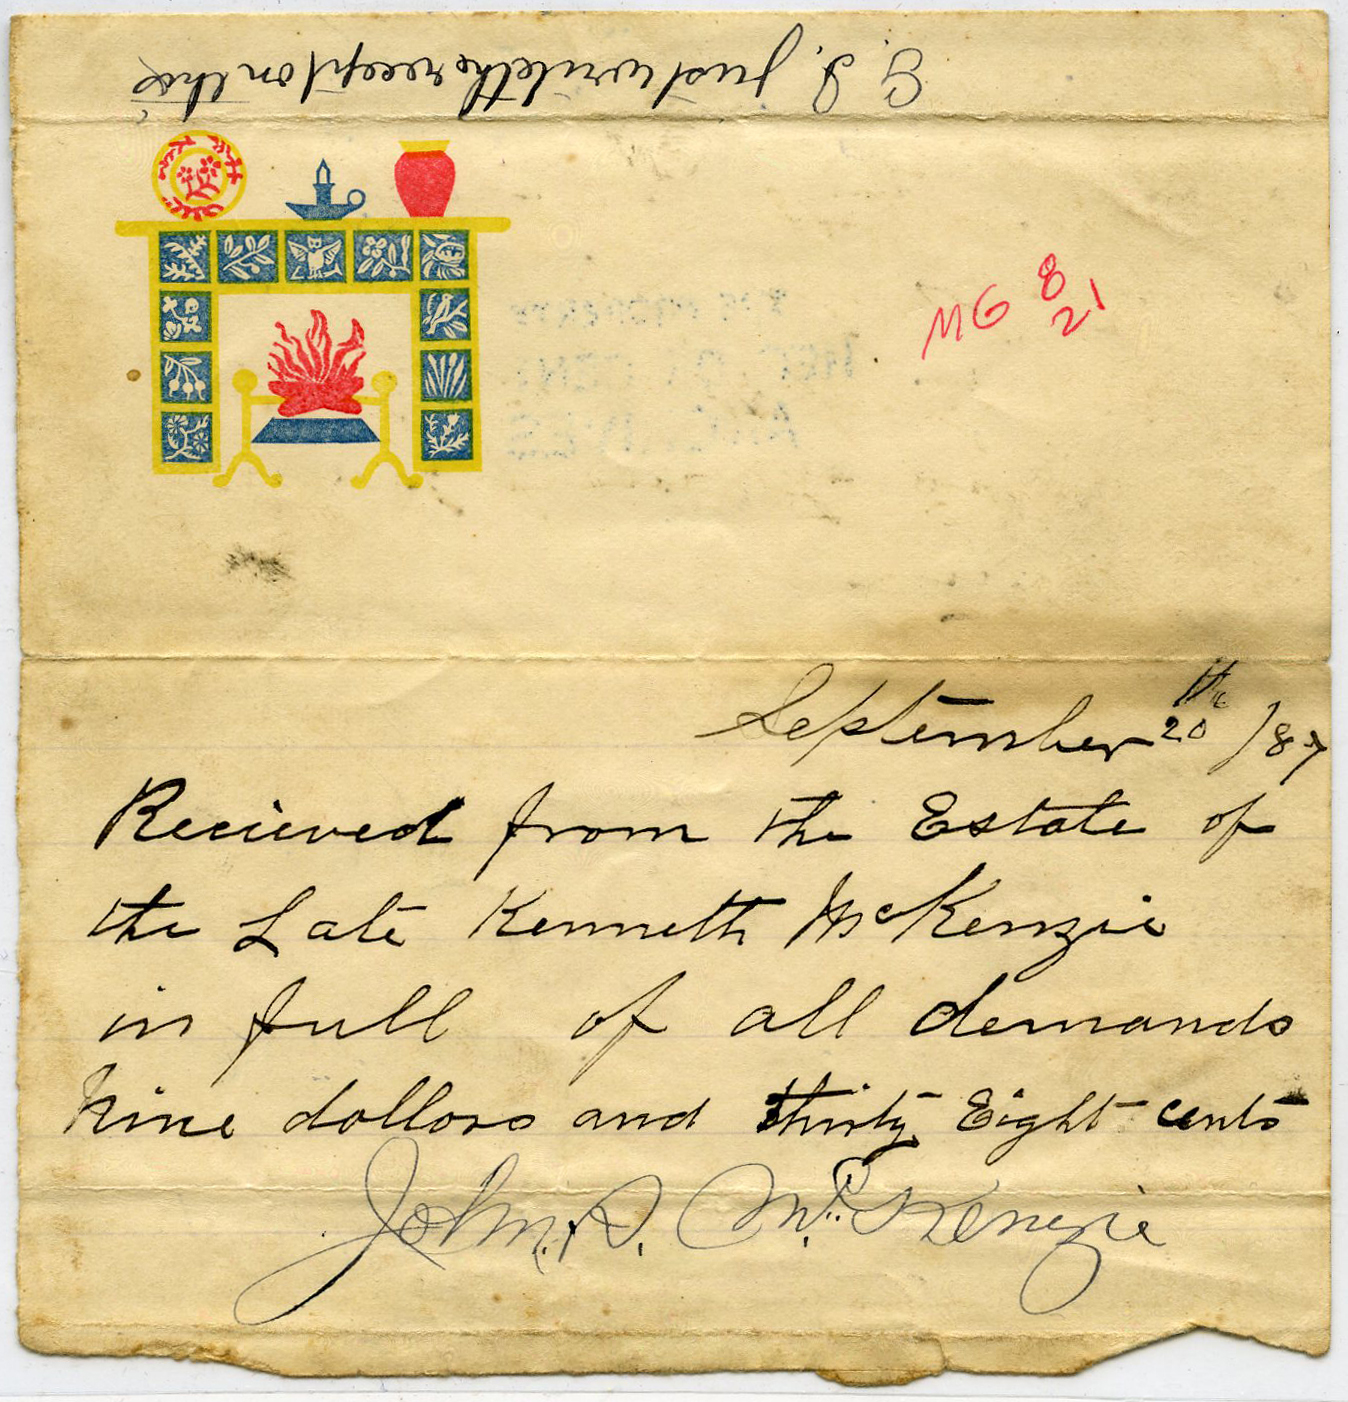 G. I. Just write the recept on this
MG 8
21
September 20th /87
Recieved from the Estate of
the Late Kenneth McKenzie
in full of all demands
Nine dollars and thirty Eight cents
John. R. McKenzie